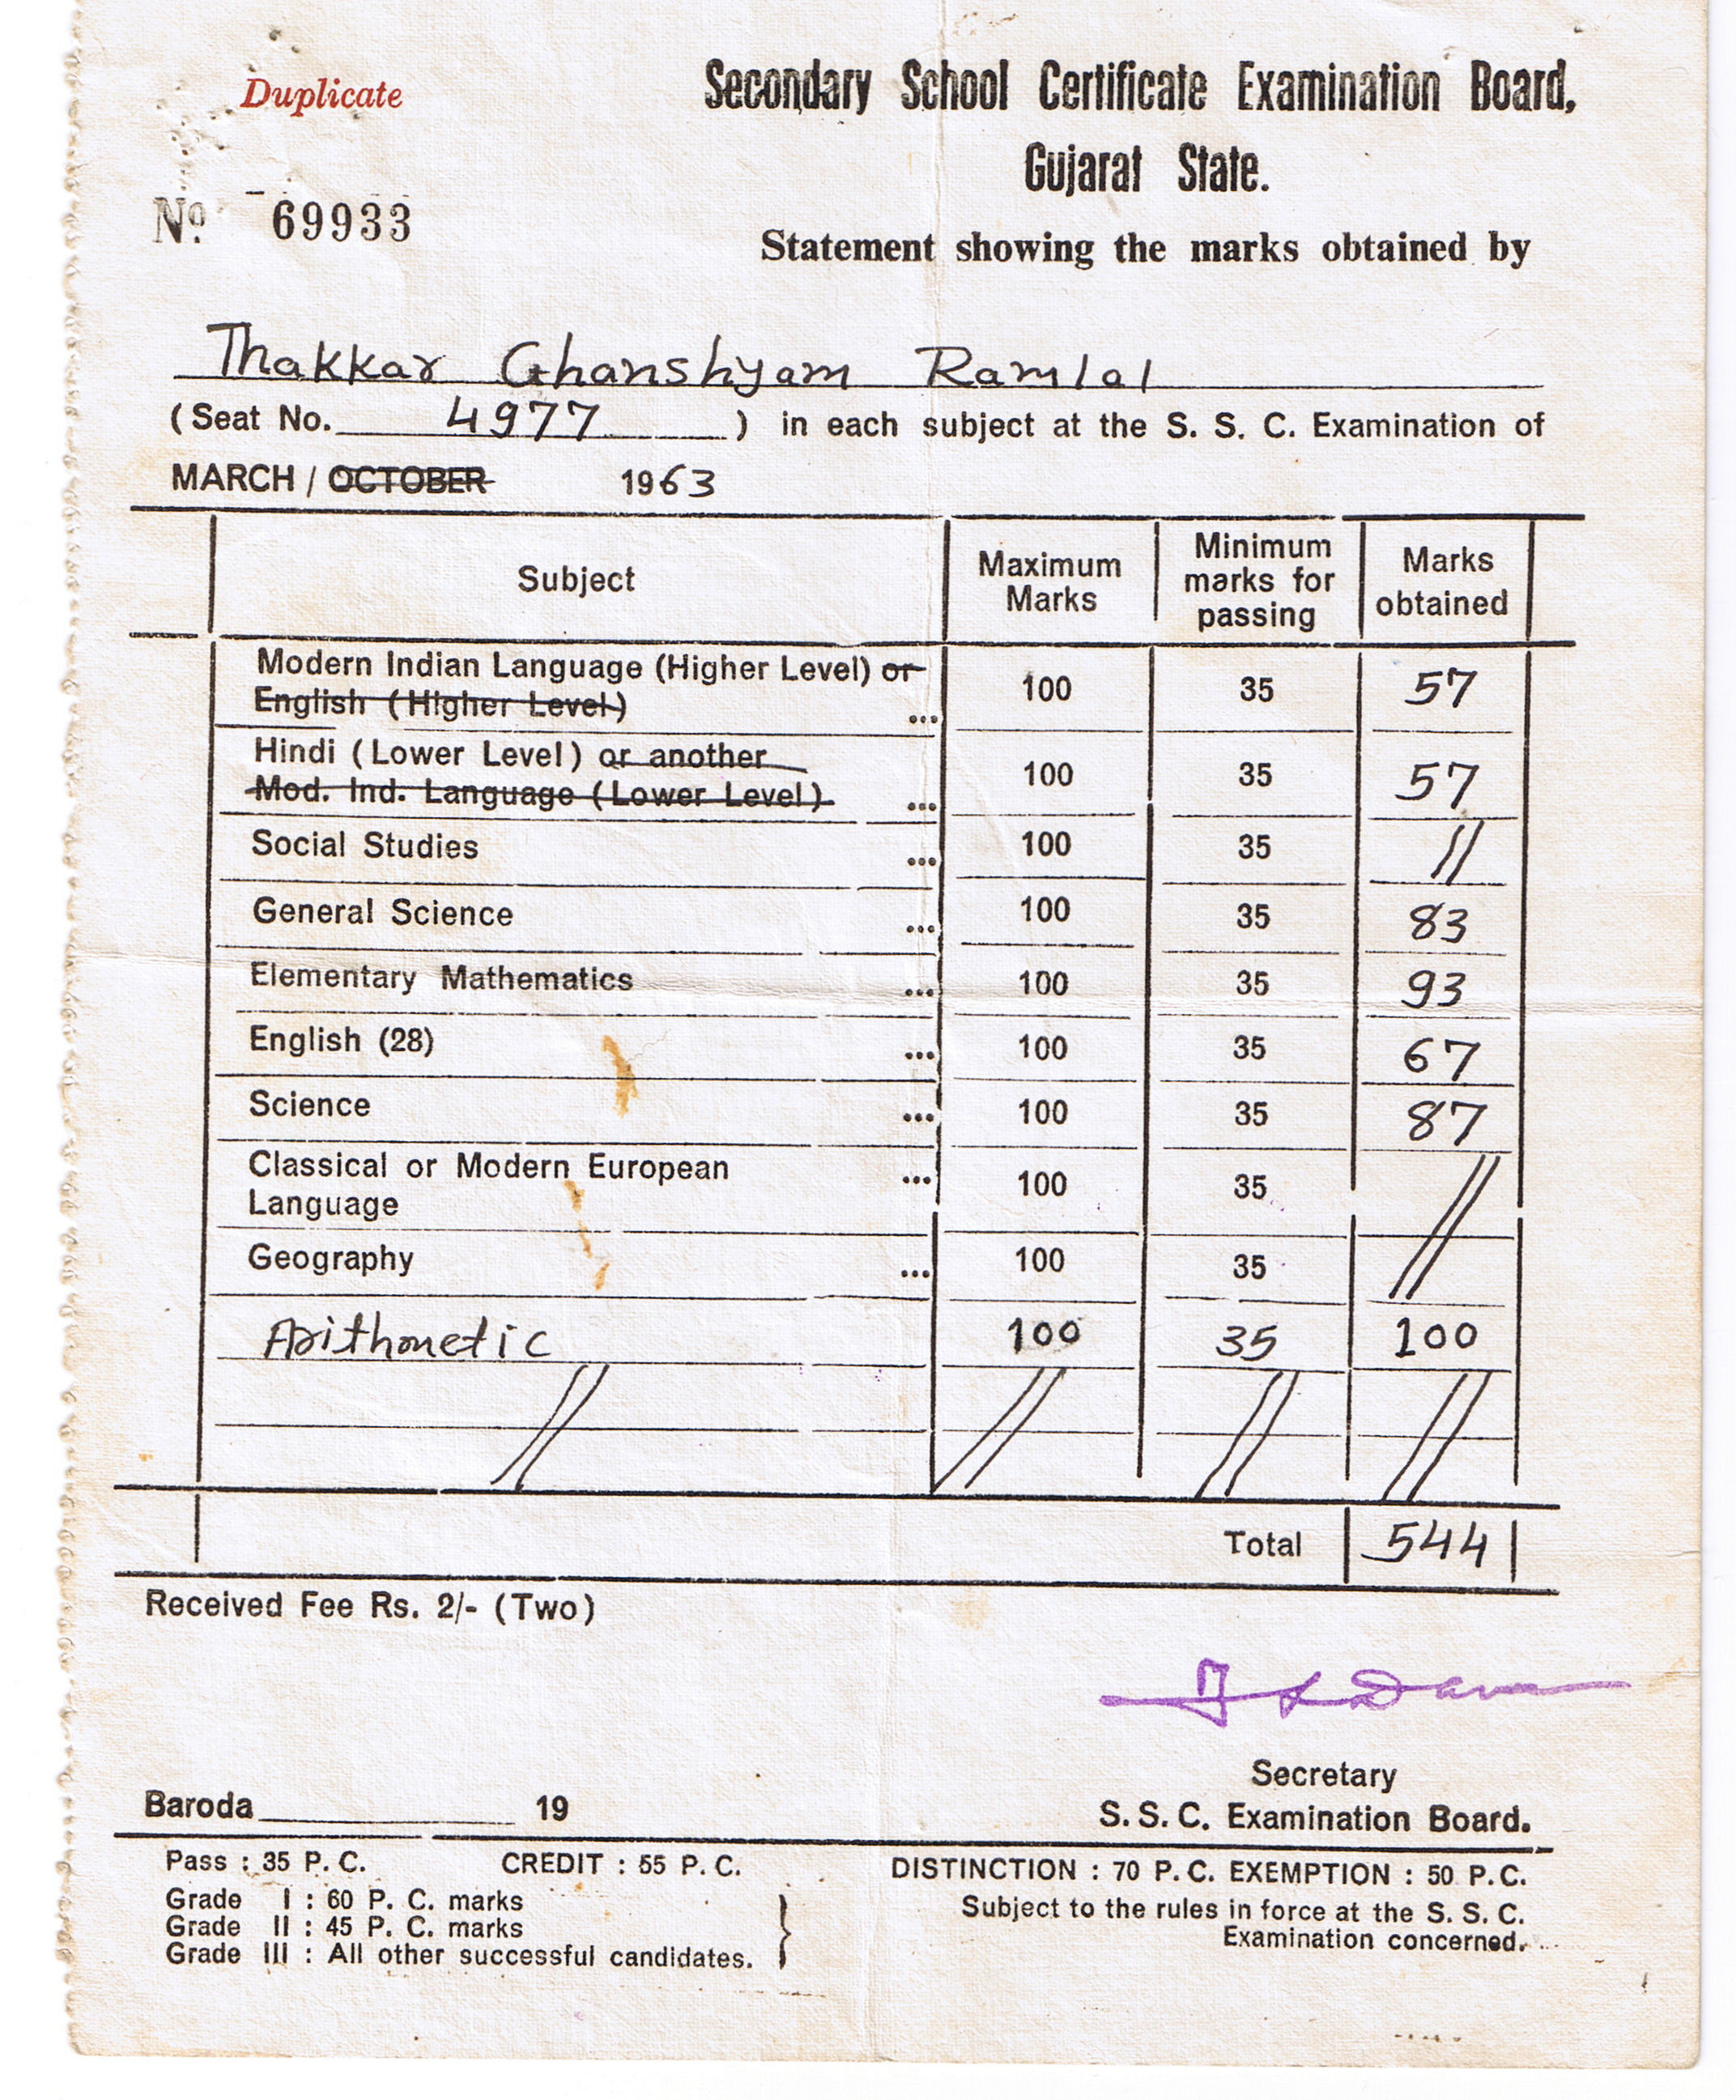 Duplicate
Secondary School Certificate Examination Board,
Gujarat State.
No. 69933
Statement showing the marks obtained by
Thakkar Ghanshyam Ramlal
(Seat No. 4977 ) in each subject at the S. S. C. Examination of
MARCH / OCTOBER 1963
Subject Maximum Marks Minimum marks for passing Marks obtained
Modern Indian Language (Higher Level) or
English (Higher Level) ... 100 35 57
Hindi (Lower Level) or another
Mod. Ind. Language (Lower Level) ... 100 35 57
Social Studies ... 100 35 //
General Science ... 100 35 83
Elementary Mathematics ... 100 35 93
English (28) ... 100 35 67
Science ... 100 35 87
Classical or Modern European ... 100 35 //
Language
Geography ... 100 35
Arithmetic 100 35 100
// // // //
Total 544
Received Fee Rs. 2/- (Two)
Secretary
Baroda 19
S. S. C. Examination Board.
Pass : 35 P. C. CREDIT : 55 P. C. DISTINCTION : 70 P. C. EXEMPTION : 50 P. C.
Grade I : 60 P. C. marks
Grade II : 45 P. C. marks
Grade III : All other successful candidates.
Subject to the rules in force at the S. S. C.
Examination concerned.